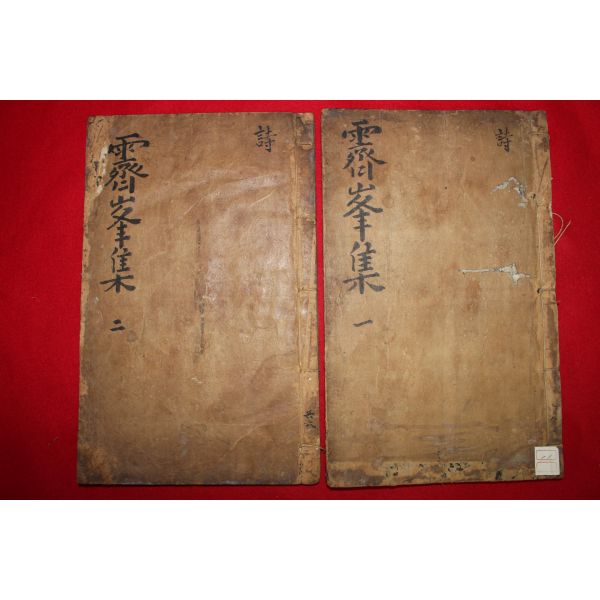 詩
霽峯集 一
詩
霽峯集 二
共八